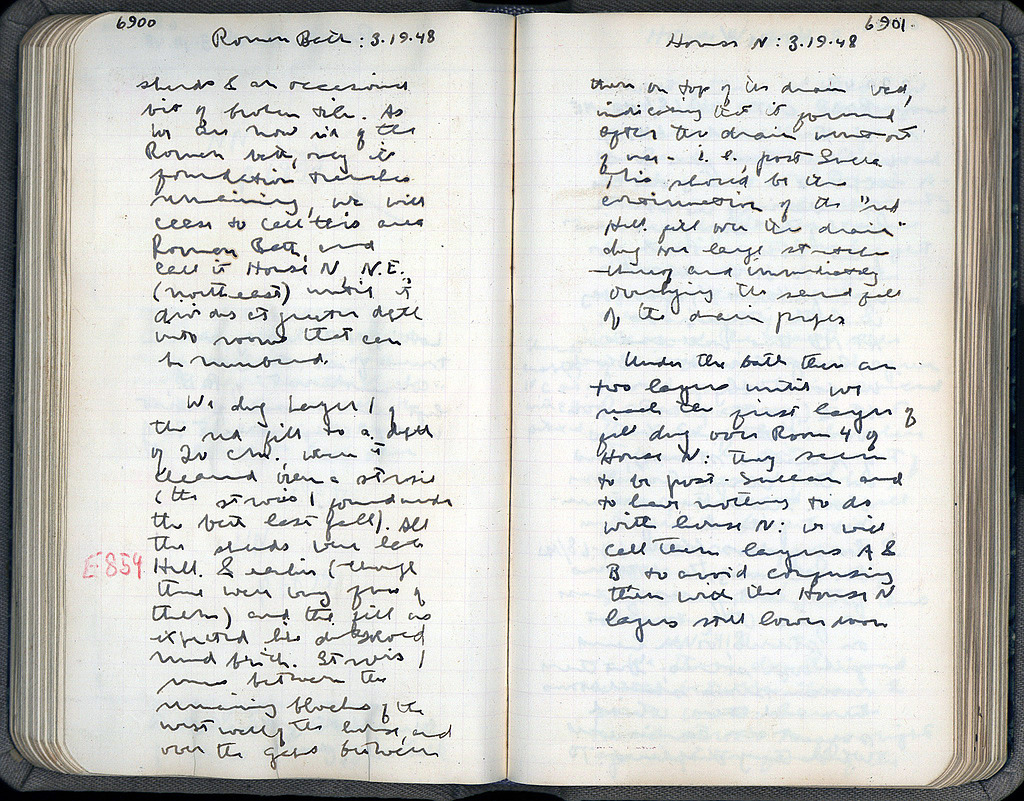 6900
Roman Bath: 3.19.48
sherds & an occasional
bit of broken tile. As
we are now rid of the
Roman bath, only its
foundation trenches
remaining, we will
cease to call this area
Roman Bath, and
call it House N, N.E.
(northeast) until it
divides at greater depth
into rooms that can
be numbered.
We dug Layer 1 of
the red fill to a depth
of 20 cm., when it
cleared over a strosis
(the strosis 1 found under
the bath last fall). All
the sherds were late
E854
Hell. & earlier (though
there were very few of
them) and the fill as
expected like dissolved
mud brick. Strosis 1
runs between the
remaining blocks of the
west wall of the house, and
over the gaps between
6901
House N: 3.19.48
them on top of the drain bed,
indicating that it formed
after the drain went out
of use - i.e., post Sulla
This should be the
continuation of the "red
Hell. fill over the drain"
dug over large stretch
and immediately
overlying the sand fill
of the drain proper
Under the bath there are
two layers until we
reach the first layer of
fill dug over Room 4 of
House N: they seem
to be post-Sullan and
to have nothing to do
with house N: we will
call them layers A &
B to avoid confusing
them with the House N
layers still lower down